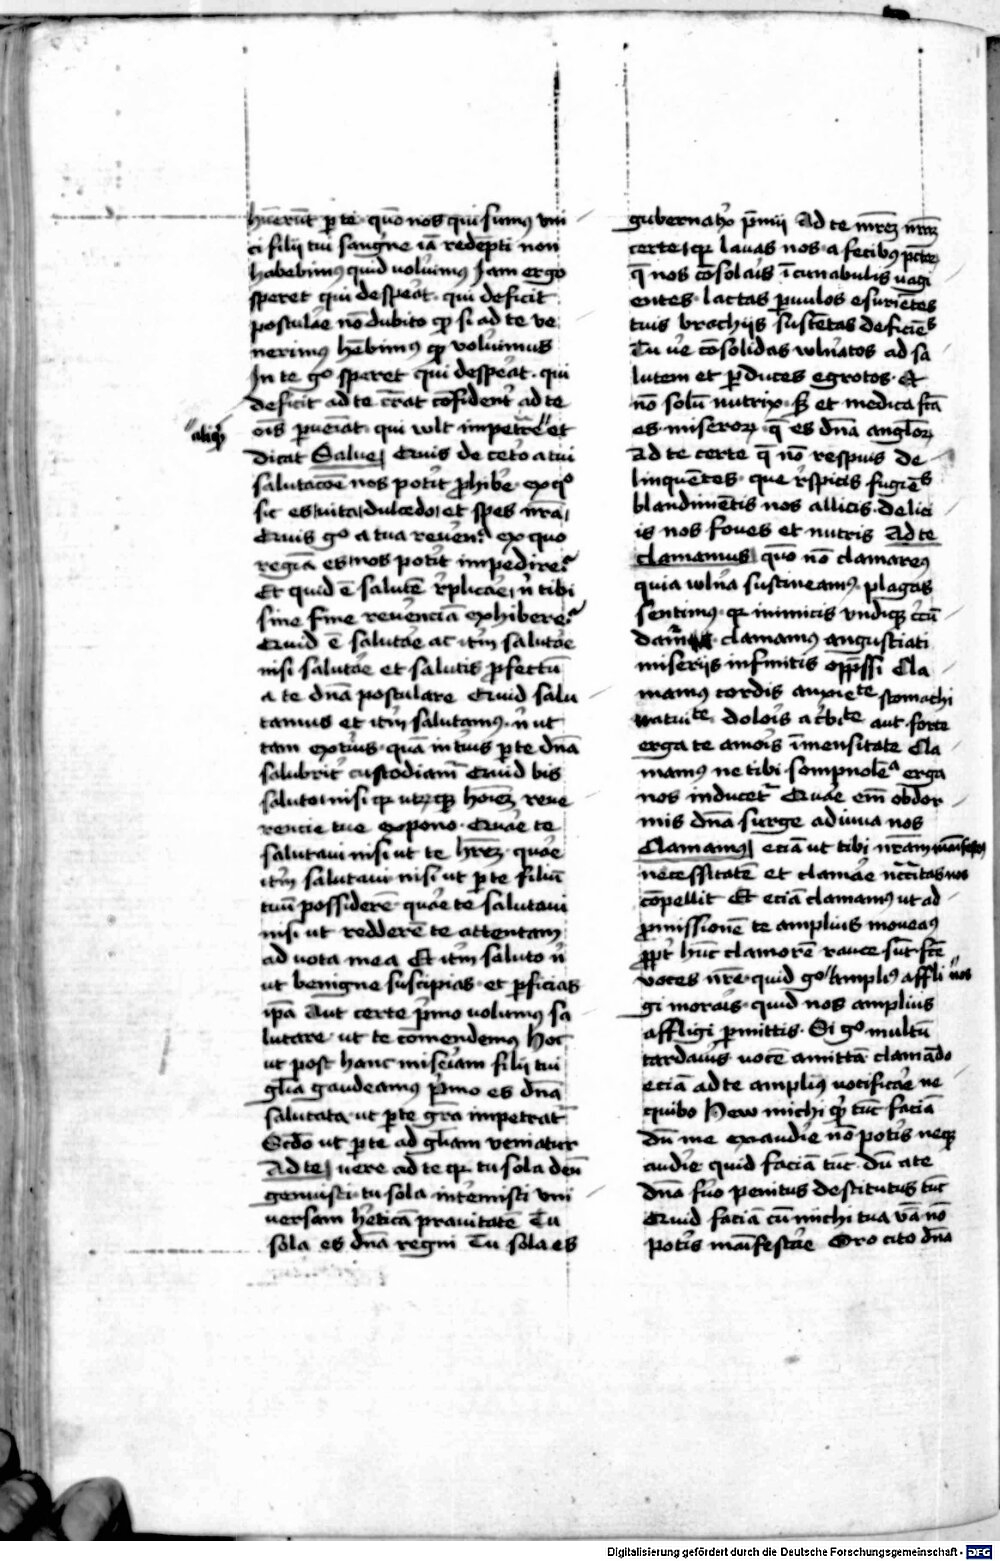 hūerūt ꝑ te · quō nos qui sumꝰ vni
ci filij tui sangne iā redēpti non
habebimꝰ quid voluimꝰ Jam ergo
speret qui despeāt · qui deficit
postulāe nō dubito ꝙ si ad te ve
nerimꝰ hēbimꝰ ꝙ voluimus
In te gͦ speret qui despeāt · qui
deficit ad te c̄rat cōfident᷑ ad te
oīs ꝑueīat qui wlt impetr̄e et
aliqͥd
dicat Salue Quis de ceto a tui
salutacōe nos potīt ꝓhibe᷑ ex qͦ
sic es vita dulcedo et spes nr̄a
Quis gͦ a tua reuen᷑ · ex quo
regīa es nos potīt impedire
Et quid ē salutē r̄plicāe n̄ tibi
sine fine reuēnciā exhibere
Quid ē salutāe ac itm̄ salutāe
nisi salutāe et salutis ꝓfectū
a te dn̄a postulare Quid salu
tamus et itm̄ salutamꝰ · n̄ ut
tam extiꝰ quā in tuis ꝑ te dn̄a
salubrit᷑ custodiam̄ Quid bis
saluto nisi qꝛ utrꝫqꝫ hoīeꝫ reue
rencie tue expono · Quāe te
salutaui nisi ut te hr̄eꝫ · quāe
itm̄ salutaui nisi ut ꝑ te filiū
tuū possiderē · quāe te salutaui
nisi ut redderē te attentam
ad vota mea Et itm̄ saluto n̄
ut benigne suscipias · et ꝑficias
ip̄a Aut certe pͥmo volumꝰ sa
lutare · ut te cōmendemꝰ Hoc
ut post hanc miseīam filij tui
gl̄ia gaudeamꝰ Pͥmo es dn̄a
salutata · ut ꝑ te gr̄a impetrat᷑
Scd̄o ut ꝑ te ad gl̄iam veniatur
Ad te vere ad te qꝛ tu sola deū
genuisti · tu sola intēmisti vni
uersam h̄eticā prauitatē Tu
sola es dn̄a regni Tu sola es
gubernat᷑x pͥmij Ad te mr̄eꝫ nr̄aꝫ
certe qꝛ lauas nos a fecibꝰ pctōrꝫ
q̄ nos cōsolaīs ī cunabulis vagi
entes · lactas ꝑuulos esuriētes
tuis brachijs sustētas deficiēˢ
Tu v̄e cōsolidas wlnātos ad sa
lutem et ꝑduces egrotos · Et
nō solū nutrix · sꝫ et medica fc̄a
es miseroꝝ · q̄ es dn̄a angloꝝ
Ad te certe q̄ nō respuis de
linquētes · que r̄spicis fugiēˢ
blandimētis nos allicis · delici
is nos foues et nutris Ad te
clamamus quō nō clamareꝰ
quia wlna sustineamꝰ · plagas
sentimꝰ · qꝛ inimicis vndiqꝫ c̄cū
dam̄ · clamamꝰ angustiati
miserijs infinitis opp̄ssi Cla
mamꝰ cordis anxieᵗᵉ stomachi
dolois ac̄biᵗᵉ aut forte
erga te amoīs īmensitate Cla
mamꝰ ne tibi sompnolēᵃ erga
nos inducet᷑ Quāe em̄ obdor
mis dn̄a surge adiuua nos
Clamamꝰ eciā ut tibi nr̄am māifestꝰ
necessitatē et clamāe nc̄c̄itas nos
cōpellit Et eciā clamamꝰ ut ad
ꝓmissionē te amplius moueaꝰ
ꝓpt᷑ hūc clamorē rauce sūt fc̄e
voces nr̄e · quid gͦ ampliꝰ affli nos
gi moraīs · quid nos amplius
affligi ꝑmittis · Si gͦ multū
tardauīs vocē amittā clamādo
eciā ad te ampliꝰ vocificāe ne
quibo Hew michi qͥd tūc faciā
dū me exaudīe nō potīs neqꝫ
audīe quid faciā tūc · dū a te
dn̄a fuo penitus destitutus tūc
Quid faciā cū michi tua vā nō
potīs māifestāe Oro cito dn̄a
Digitalisierung gefördert durch die Deutsche Forschungsgemeinschaft - DFG